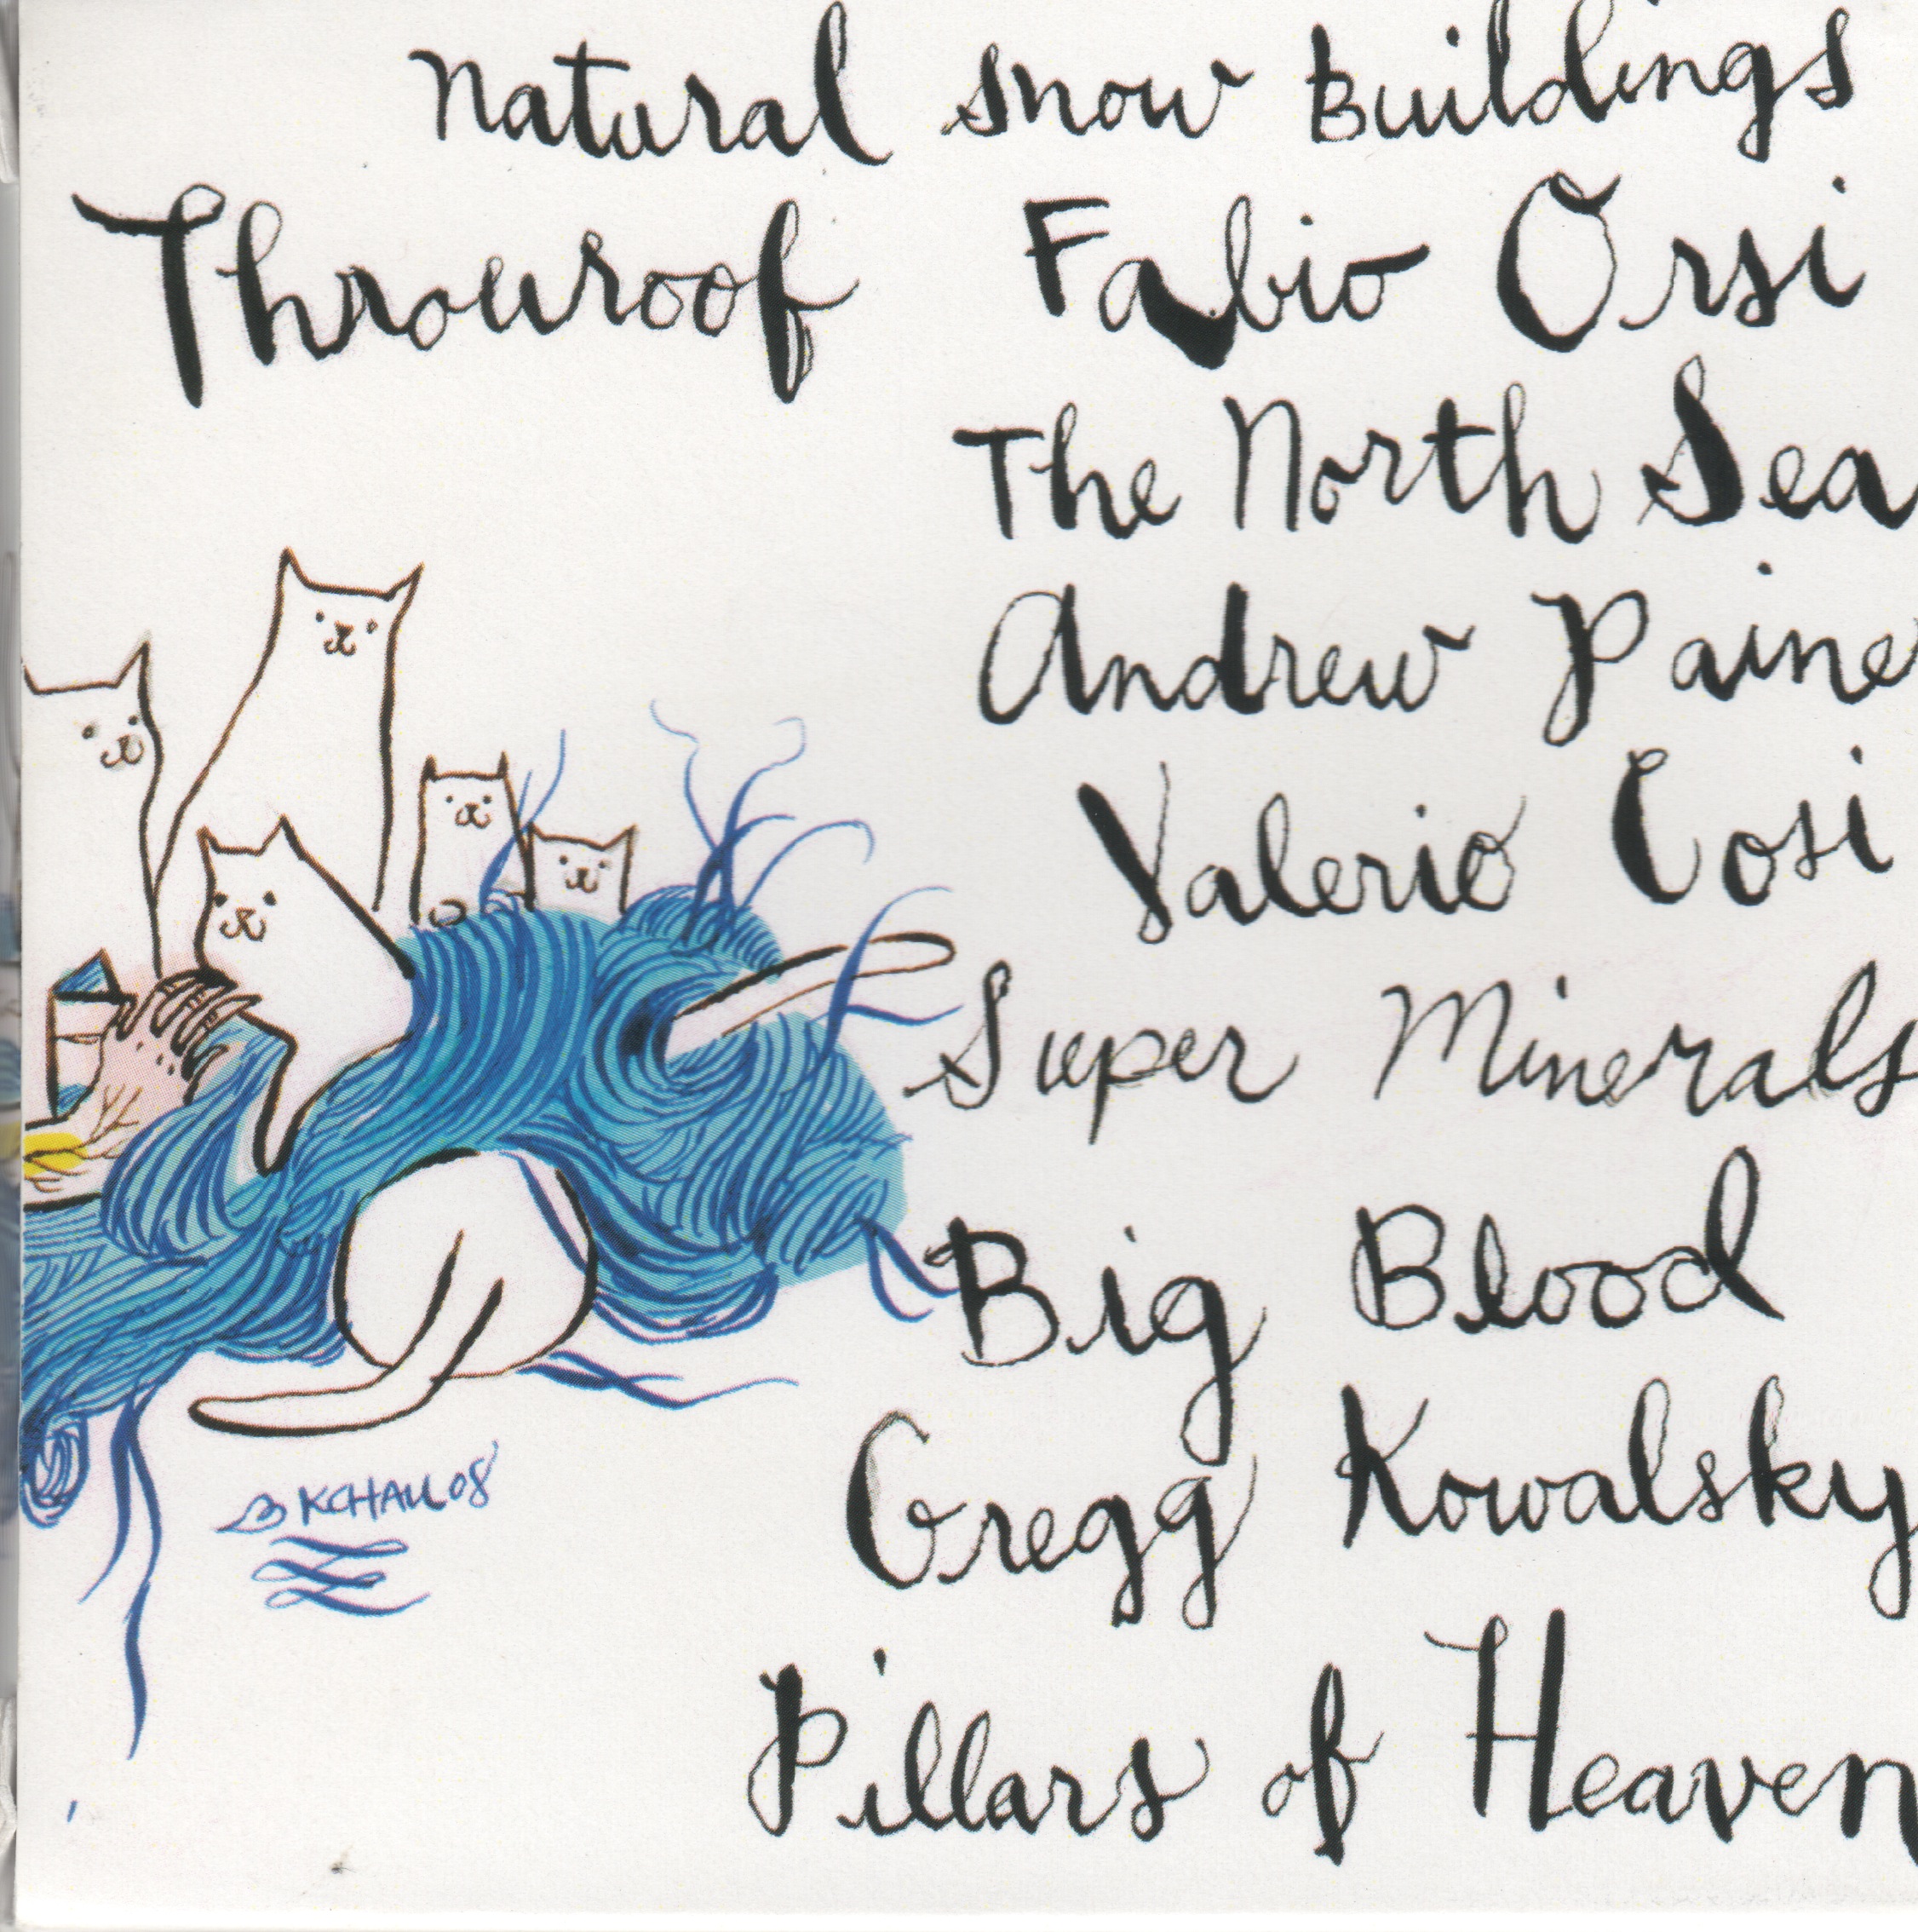 Natural Snow Buildings
Throuroof Fabio Orsi
The North Sea
Andrew Paine
Valerio Cosi
Super Minerals
Big Blood
Gregg Kowalsky
Pillars of Heaven
KCHAU 08